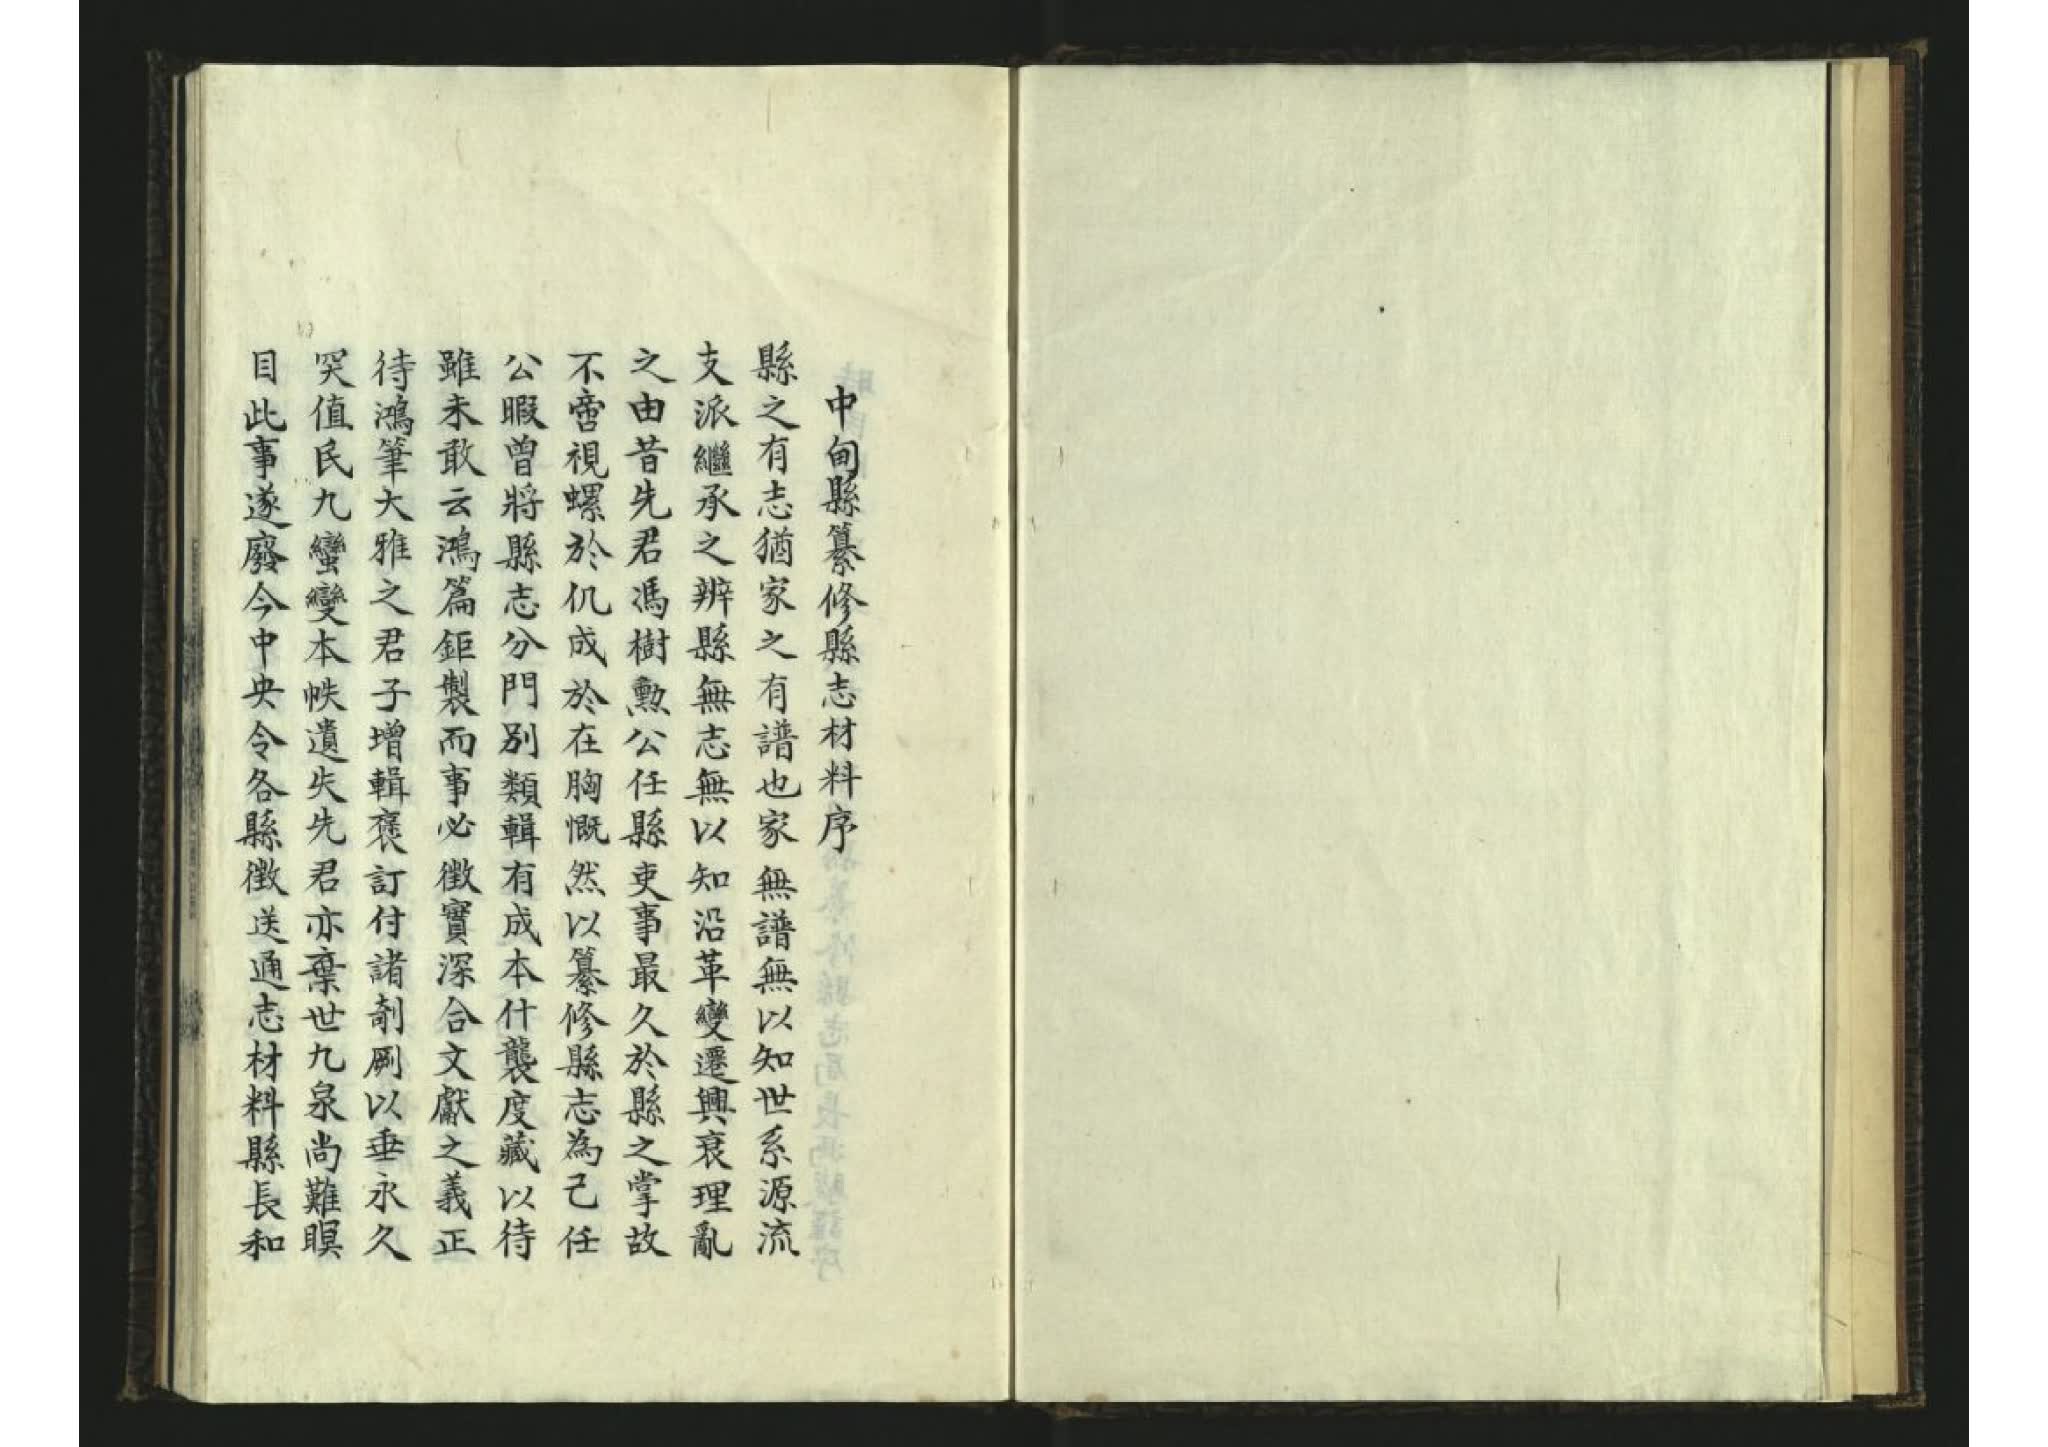 中甸縣纂修縣志材料序
縣之有志猶家之有譜也家無譜無以知世系源流
支派繼承之辨縣無志無以知沿革變遷興衰理亂
之由昔先君馮樹勲公任縣吏事最久於縣之掌故
不啻視螺於仉成於在胸慨然以纂修縣志為己任
公暇曾將縣志分門別類輯有成本什襲度藏以待
雖未敢云鴻篇鉅製而事必徵實深合文獻之義正
待鴻筆大雅之君子增輯褒訂付諸剞劂以垂永久
突值民九蠻變本帙遺失先君亦棄世九泉尚難瞑
目此事遂廢今中央令各縣徵送通志材料縣長和